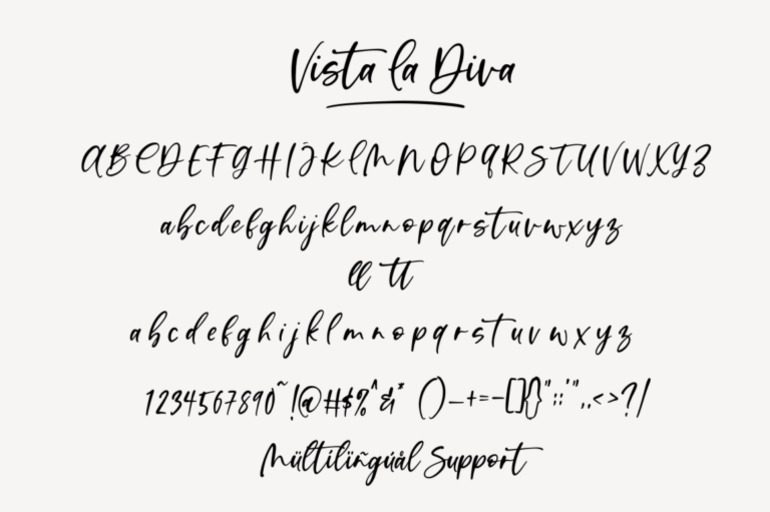 Vista la Diva
ABCDEFGHIJKLMNOPQRSTUVWXYZ
abcdefghijklmnopqrstuvwxyz
ll tt
abcdefghijklmnopqrstuvwxyz
1234567890~!@#$%^&* ()_+=-[]{}":;'",.<>?/
Mültilïñgúål Support